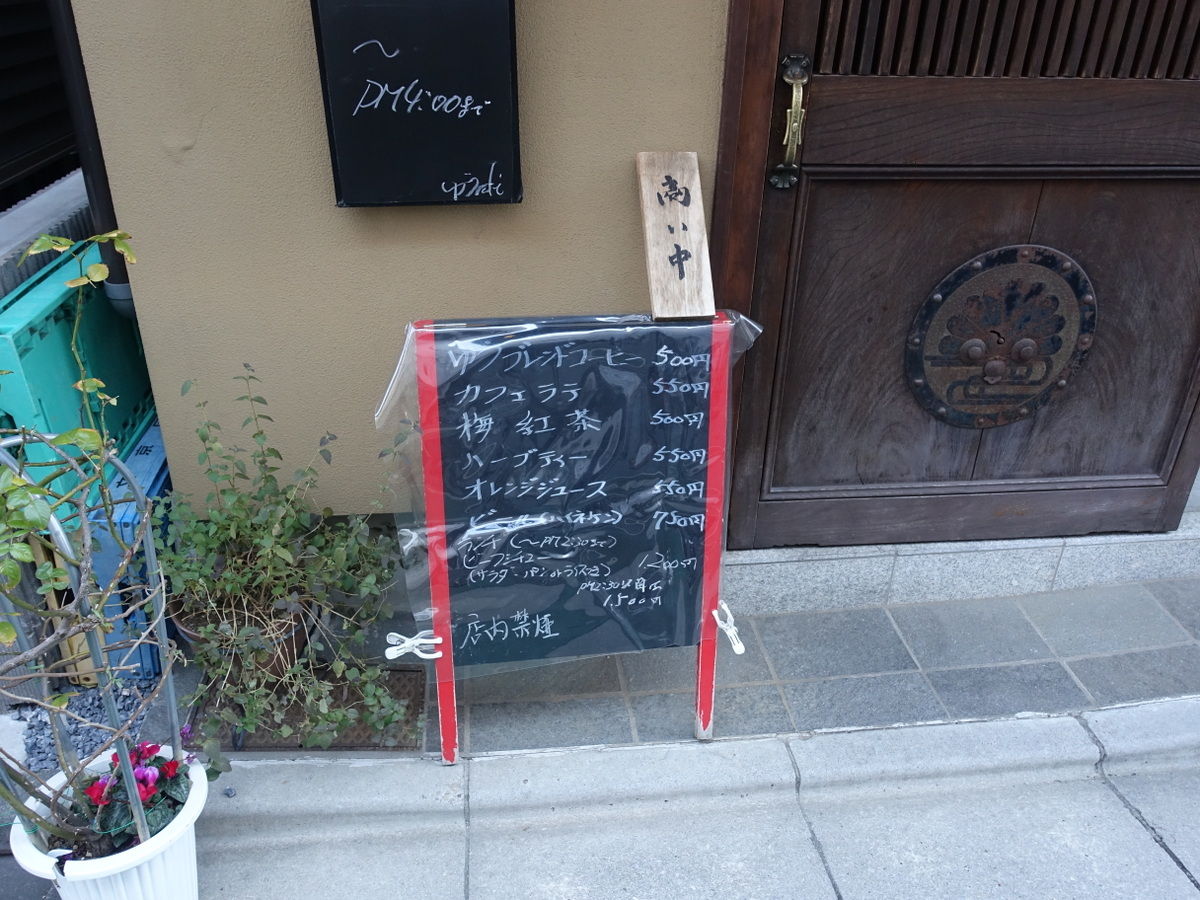 ～
PM4:00まで
高い中
ゆうブレンドコーヒー 500円
カフェラテ 550円
梅紅茶 500円
ハーブティー 550円
オレンジジュース 550円
ビール(ハイネケン) 750円
ランチ(～PM2:30まで)
ビーフシチュー 1200円
(サラダ・パンorライス付)
PM2:30以降は
1,500円
店内禁煙